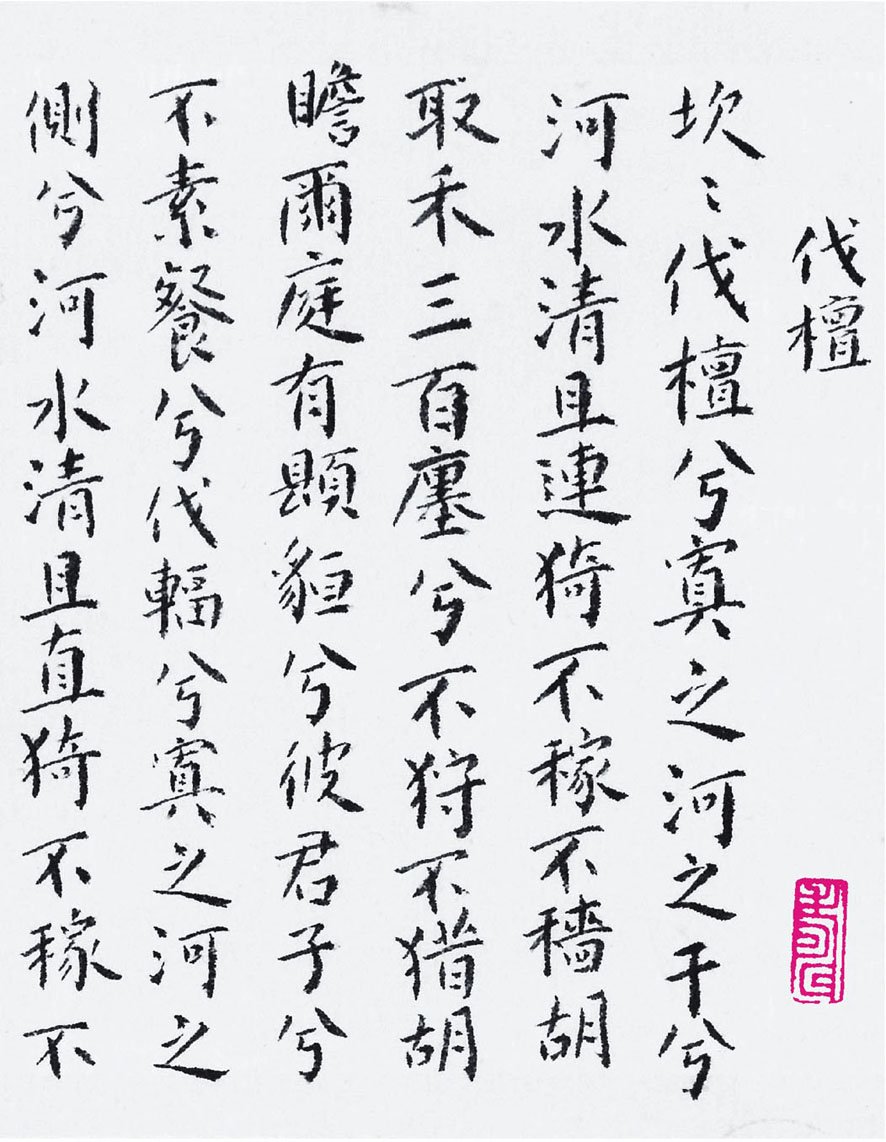 伐檀
坎〻伐檀兮寘之河之干兮
河水清且連猗不稼不穡胡
取禾三百廛兮不狩不猎胡
瞻爾庭有顕貆兮彼君子兮
不素餐兮伐輻兮寘之河之
側兮河水清且直猗不稼不